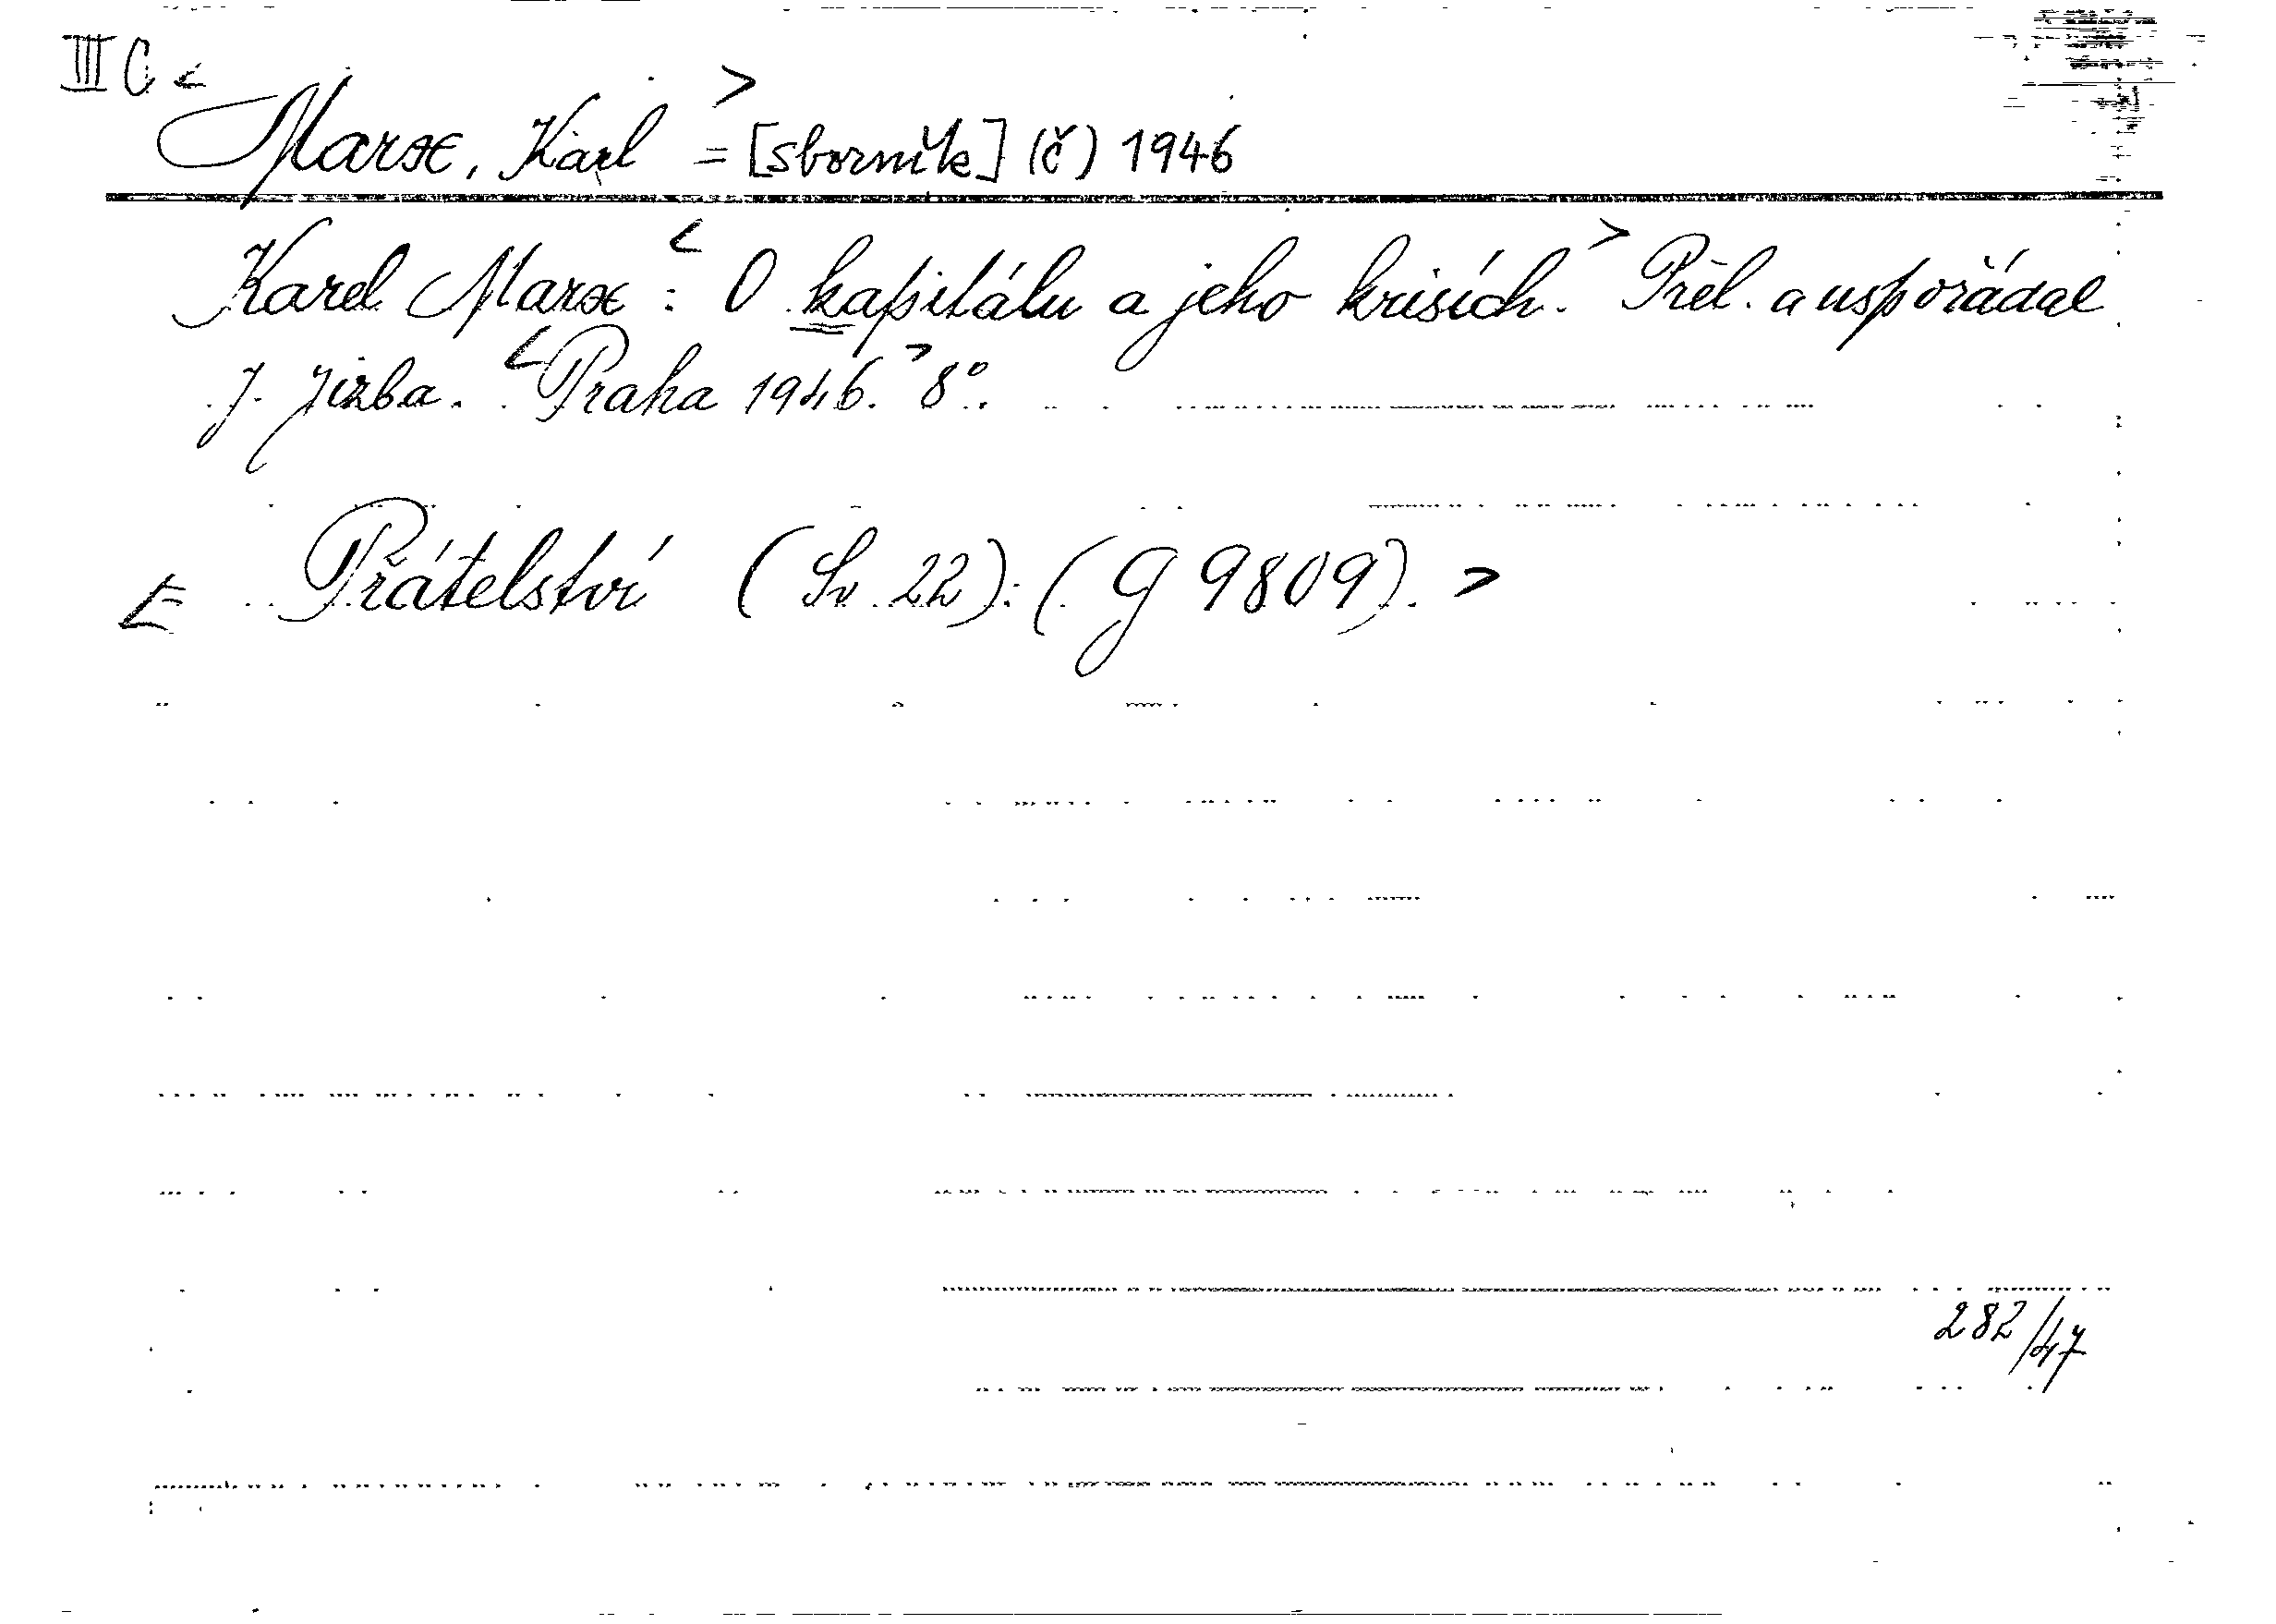 III C <
Marx, Karl > = [sborník] (č) 1946
Karel Marx: < O kapitálu a jeho krisích. > Přel. a uspořádal
J. Jizba. < Praha 1946. > 8°.
< Přátelství (Sv. 22): (G 9809). >
282/47